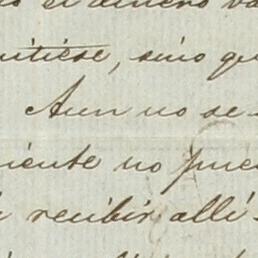 el dinero
itiese, sino qu
Aun no se
niente no pue
recibir allí